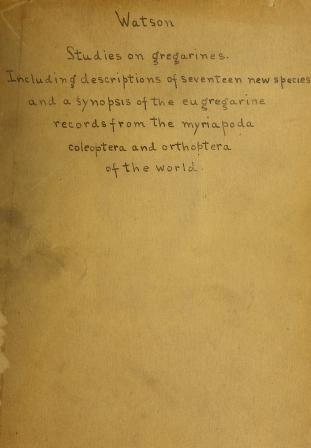 Watson
Studies on gregarines.
Including descriptions of seventeen new species
and a synopsis of the eugregarine
records from the myriapoda
coleoptera and orthoptera
of the world.